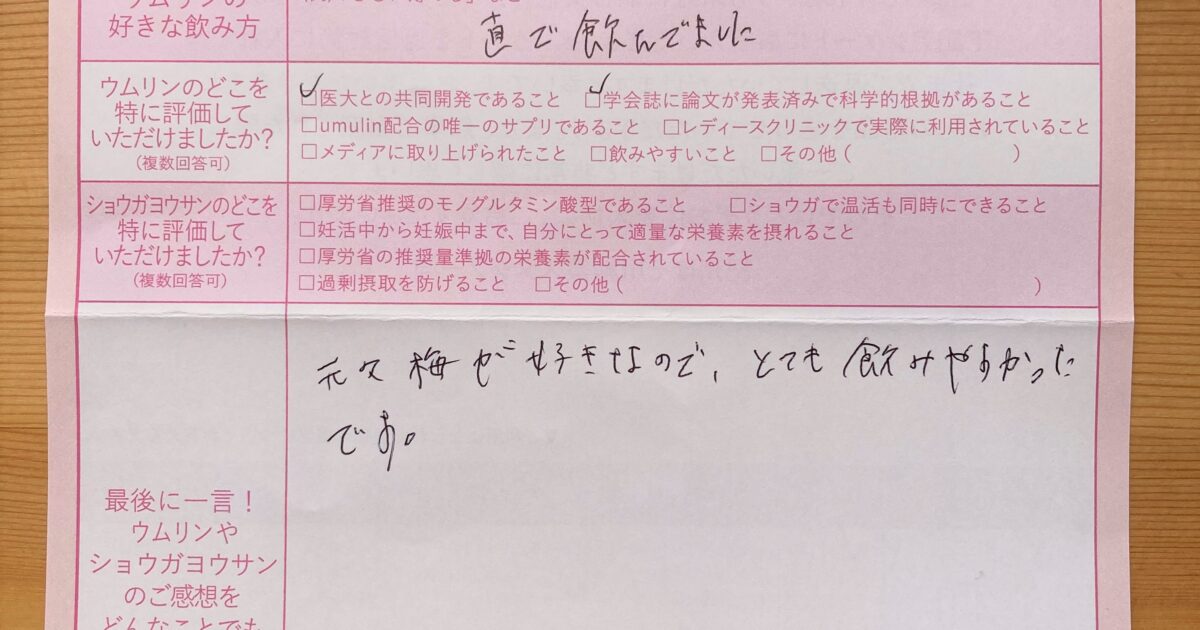 好きな飲み方
直で飲んでました
ウムリンのどこを
特に評価して
いただけましたか?
(複数回答可)
☑医大との共同開発であること ☑学会誌に論文が発表済みで科学的根拠があること
□umulin配合の唯一のサプリであること □レディースクリニックで実際に利用されていること
□メディアに取り上げられたこと □飲みやすいこと □その他 ( )
ショウガヨウサンのどこを
特に評価して
いただけましたか?
(複数回答可)
□厚労省推奨のモノグルタミン酸型であること □ショウガで温活も同時にできること
□妊活中から妊娠中まで、自分にとって適量な栄養素を摂れること
□厚労省の推奨量準拠の栄養素が配合されていること
□過剰摂取を防げること □その他 ( )
元々梅が好きなので、とても飲みやすかった
です。
最後に一言!
ウムリンや
ショウガヨウサン
のご感想を
どんなことでも